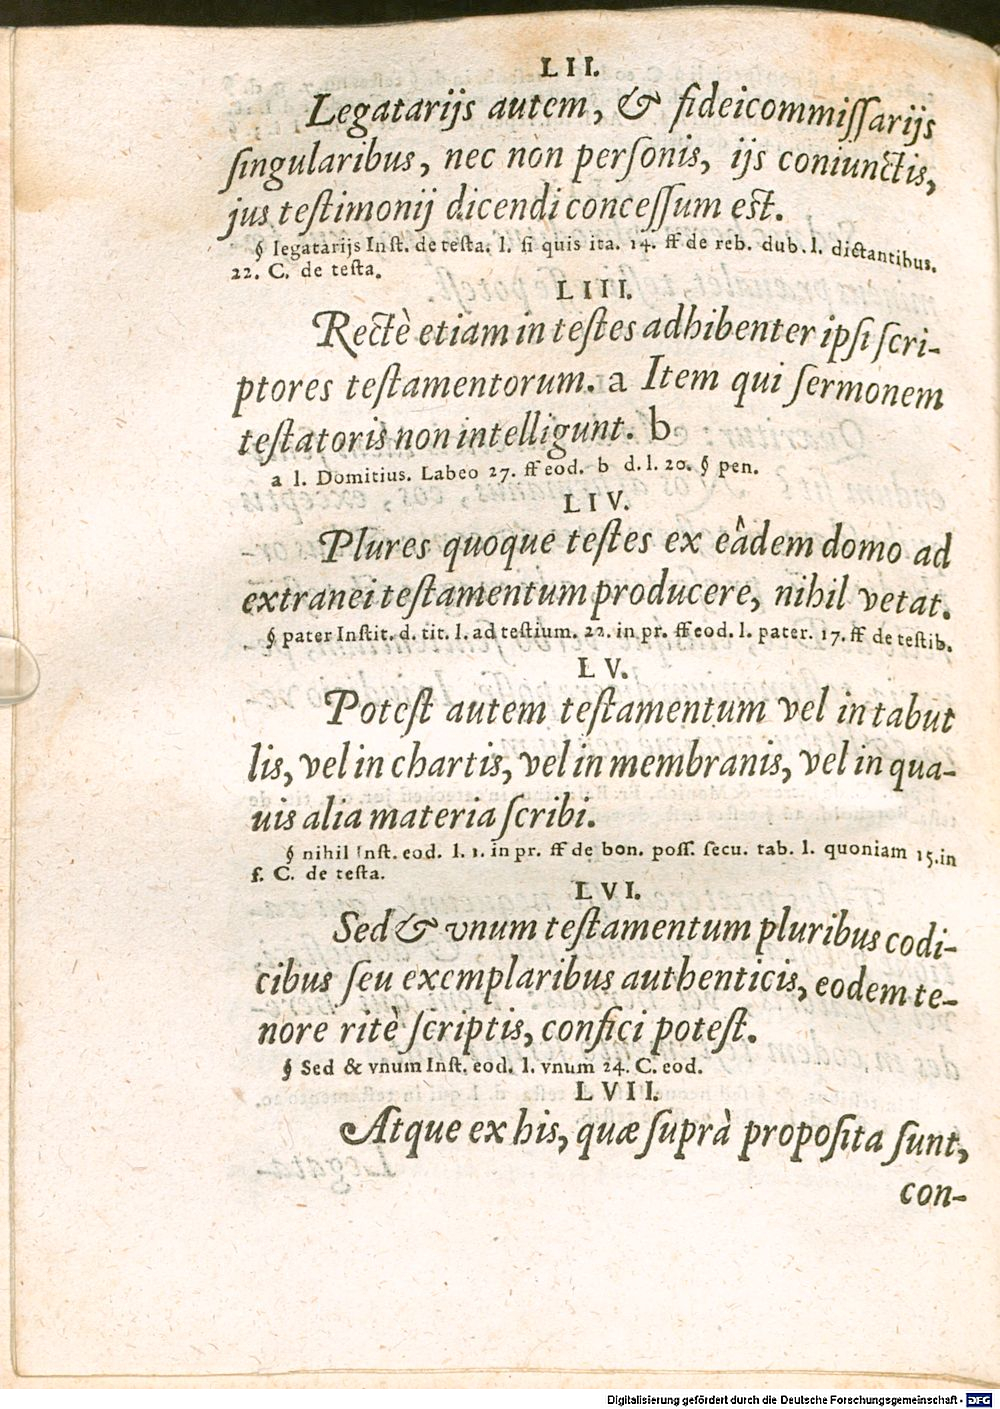 LII.
Legatarijs autem, & fideicommiſſarijs
ſingularibus, nec non perſonis, ijs coniunctis,
jus teſtimonij dicendi conceſſum eſt.
§ legatarijs Inſt. de teſta. l. ſi quis ita. 14. ff de reb. dub. l. dictantibus.
22. C. de teſta.
LIII.
Rectè etiam in teſtes adhibenter ipſi ſcri-
ptores teſtamentorum. a Item qui ſermonem
teſtatoris non intelligunt. b
a l. Domitius. Labeo 27. ff eod. b d. l. 20. § pen.
LIV.
Plures quoque teſtes ex eâdem domo ad
extranei teſtamentum producere, nihil vetat.
§ pater Inſtit. d. tit. l. ad teſtium. 22. in pr. ff eod. l. pater. 17. ff de teſtib.
LV.
Poteſt autem teſtamentum vel in tabut
lis, vel in chartis, vel in membranis, vel in qua-
uis alia materia ſcribi.
§ nihil Inſt. eod. l. 1. in pr. ff de bon. poſſ. ſecu. tab. l. quoniam 15. in
f. C. de teſta.
LVI.
Sed & vnum teſtamentum pluribus codi-
cibus ſeu exemplaribus authenticis, eodem te-
nore ritè ſcriptis, confici poteſt.
§ Sed & vnum Inſt. eod. l. vnum 24. C. eod.
LVII.
Atque ex his, quæ ſuprà propoſita ſunt,
con-
Digitalisierung gefördert durch die Deutsche Forschungsgemeinschaft - DFG